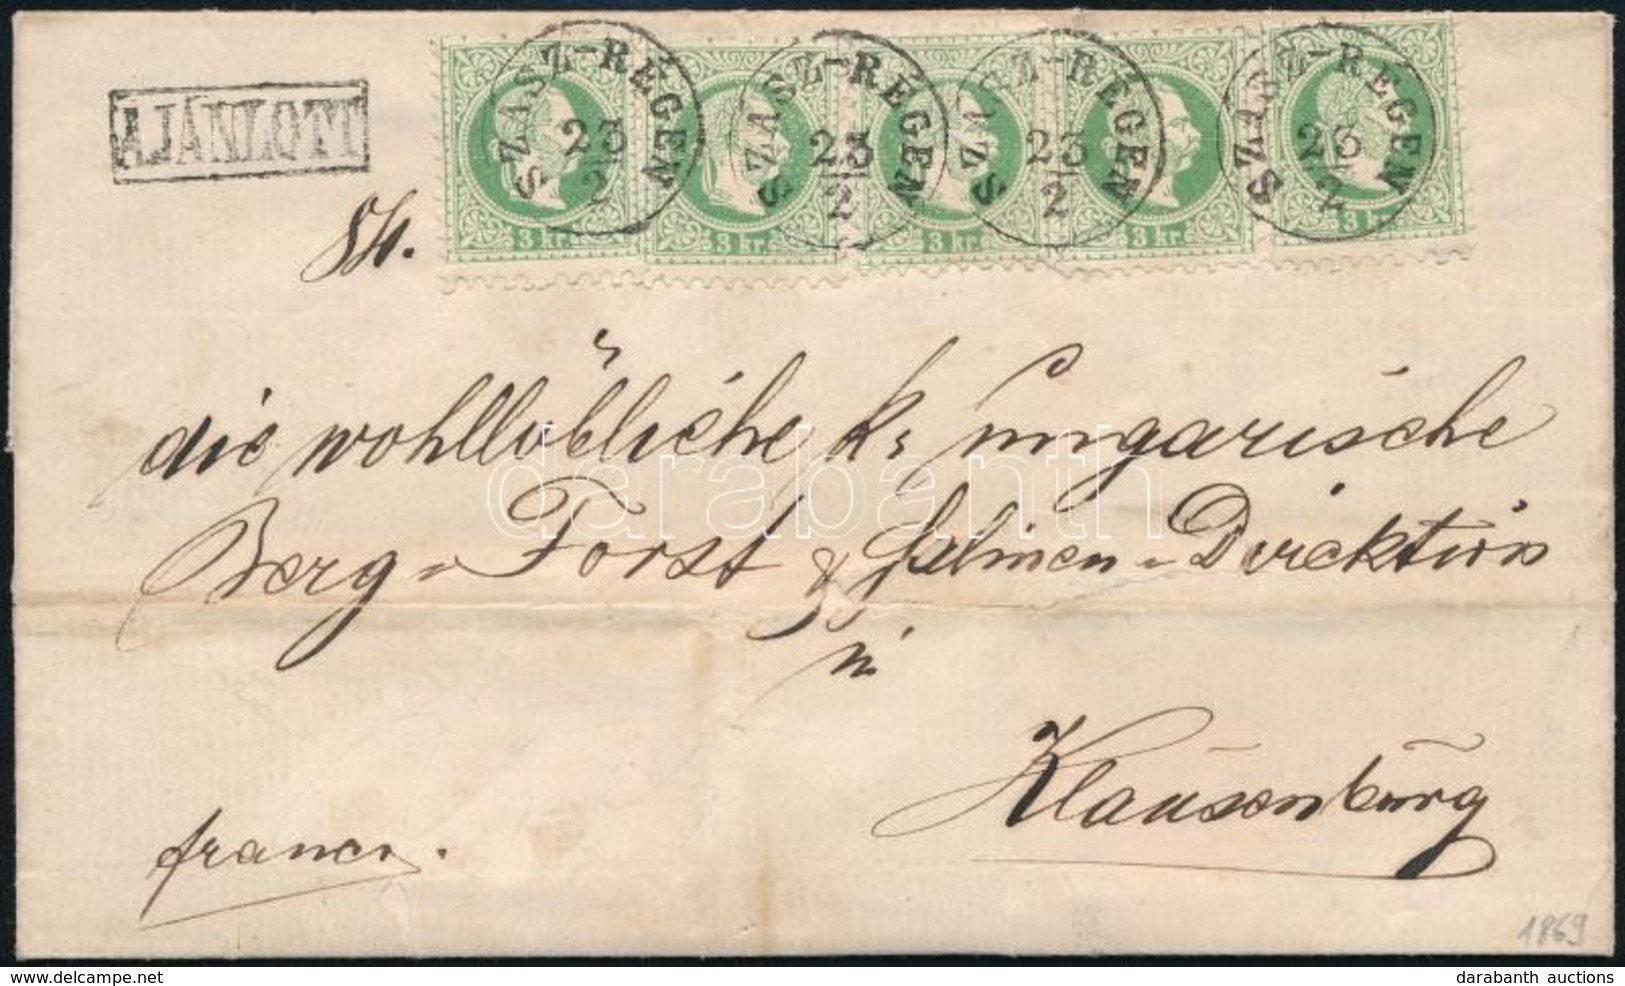 AJÁNLOTT
SZÁSZ-RÉGEN
23
2
SZÁSZ-RÉGEN
23
2
SZÁSZ-RÉGEN
23
2
SZÁSZ-RÉGEN
23
2
3 kr.
3 kr.
3 kr.
3 kr.
3 kr.
die wohllöbliche k. ungarische
Berg- Forst & Salinen-Direktion
in
Klausenburg
franco.
1869
darabanth
delcampe.net
darabanth auctions